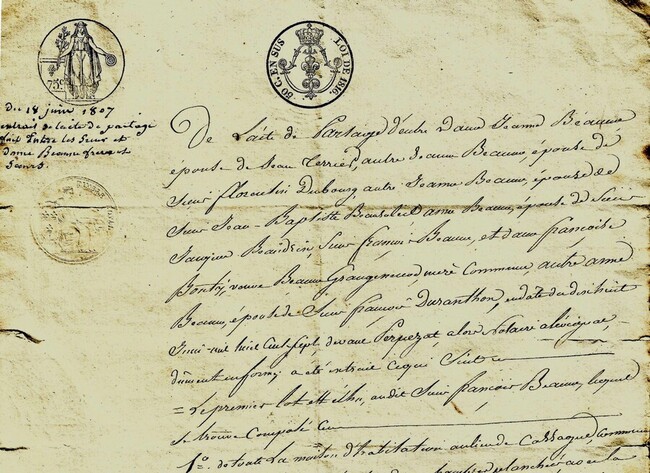 75.c
50 C. EN SUS LOI DE 1816
Du 18 juin 1807
extrait de lacte de partage
fait Entre les Sieur et
dame Beaune frere et
Soeurs.
De Lacte de Partage d'entre Dame Jeanne Beaune
épouse de Jean Terrier, autre Jeanne Beaune, épouse de
Sieur florentin Dubourg autre Jeanne Beaune, épouse de
Sieur Jean-Baptiste Anne Beaune, épouse de Sieur
Sieur françois Beaune, et dame françoise
veuve Beaune mere Commune, autre anne
Beaune, épouse de Sieur françois Duranthon, en date du dix huit
Juin mil huit Cent Sept, devant alors Notaire
dûment en forme, a été extrait ce qui Suit
= Le premier lot est échu, audit Sieur françois Beaune, lequel
Se trouve Composé
1°. de toute La maison d'habitation au lieu de Cassaque, Commune